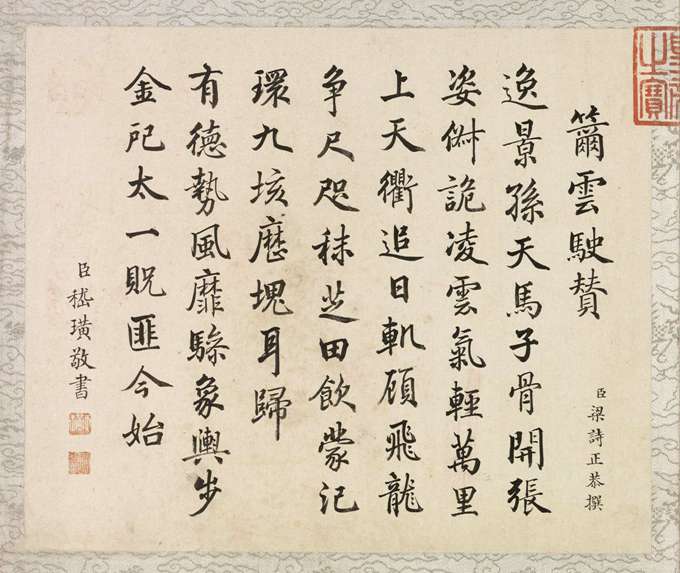 籋雲駛贊
臣梁詩正恭撰
逸景孫天馬子骨開張
姿俶詭凌雲氣輕萬里
上天衢追日軌顧飛龍
争尺咫秣芝田飲蒙汜
環九垓歷塊耳歸
有德勢風靡驂象輿步
金戺太一貺匪今始
臣嵇璜敬書
之寶